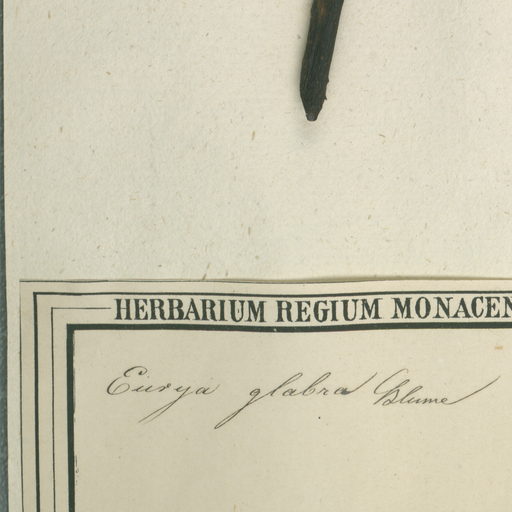 HERBARIUM REGIUM MONACEN
Eurya glabra Blume